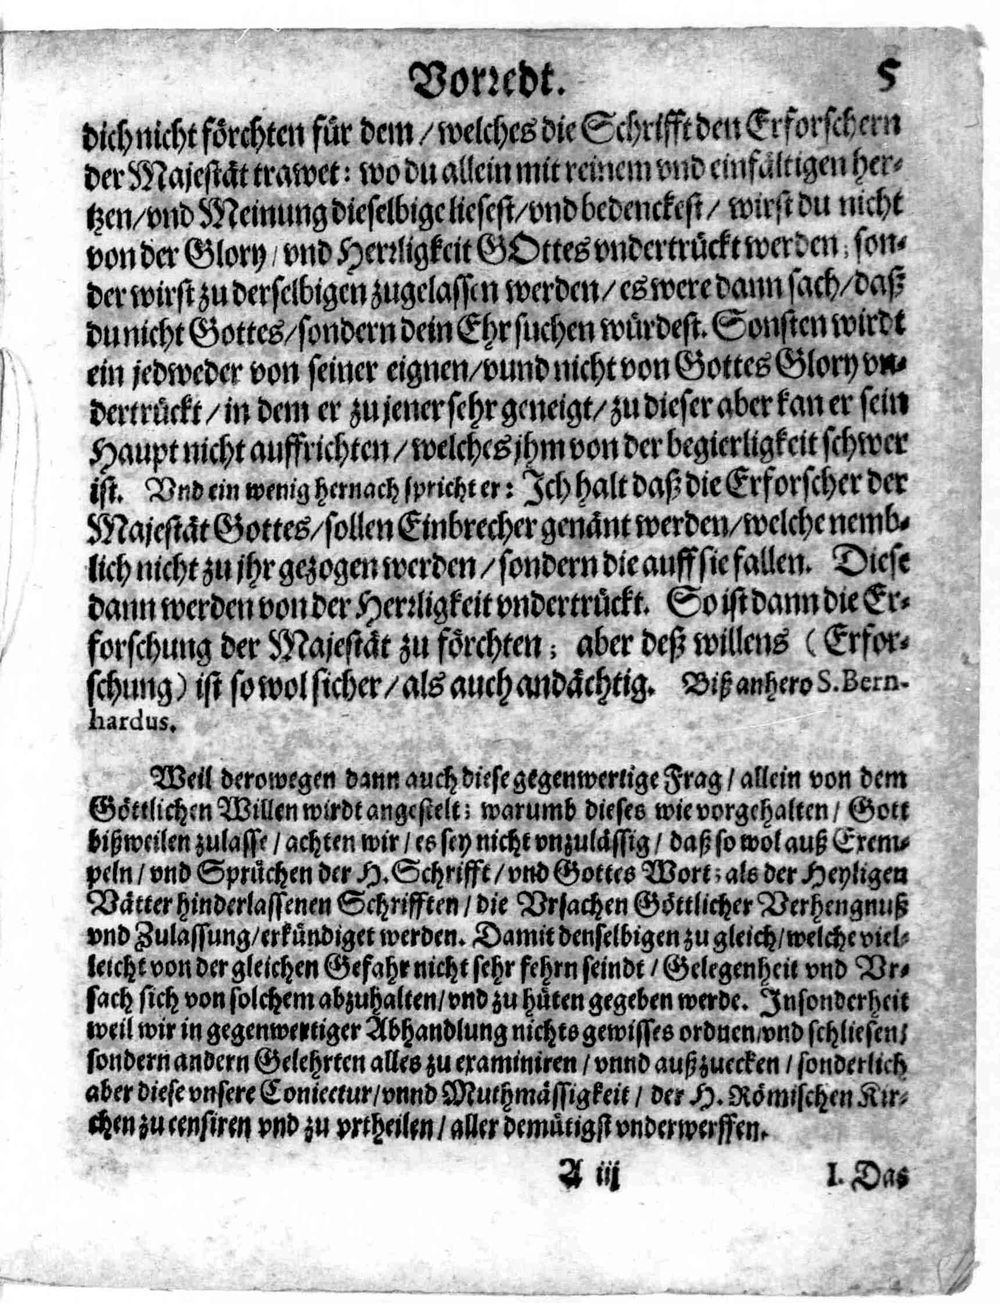 Vorredt. 5
dich nicht förchten für dem / welches die Schrifft den Erforschern
der Majestät trawet: wo du allein mit reinem vnd einfältigen her-
tzen / vnd Meinung dieselbige liesest / vnd bedenckest / wirst du nicht
von der Glory / vnd Herrligkeit GOttes vndertrückt werden; son-
der wirst zu derselbigen zugelassen werden / es were dann sach / daß
du nicht Gottes / sondern dein Ehr suchen würdest. Sonsten wirdt
ein jedweder von seiner eignen / vund nicht von Gottes Glory vn-
dertrückt / in dem er zu jener sehr geneigt / zu dieser aber kan er sein
Haupt nicht auffrichten / welches jhm von der begierligkeit schwer
ist. Vnd ein wenig hernach spricht er: Ich halt daß die Erforscher der
Majestät Gottes / sollen Einbrecher genänt werden / welche nemb-
lich nicht zu jhr gezogen werden / sondern die auff sie fallen. Diese
dann werden von der Herrligkeit vndertrückt. So ist dann die Er-
forschung der Majestät zu förchten; aber deß willens (Erfor-
schung) ist so wol sicher / als auch andächtig. Biß anhero S. Bern-
hardus.
Weil derowegen dann auch diese gegenwertige Frag / allein von dem
Göttlichen Willen wirdt angestelt: warumb dieses wie vorgehalten / Gott
bißweilen zulasse / achten wir / es sey nicht vnzulässig / daß so wol auß Exem-
peln / vnd Sprüchen der H. Schrifft / vnd Gottes Wort; als der Heyligen
Vätter hinderlassenen Schrifften / die Vrsachen Göttlicher Verhengnuß
vnd Zulassung / erkündiget werden. Damit denselbigen zu gleich / welche viel-
leicht von der gleichen Gefahr nicht sehr fehrn seindt / Gelegenheit vnd Vr-
sach sich von solchem abzuhalten / vnd zu hüten gegeben werde. Insonderheit
weil wir in gegenwertiger Abhandlung nichts gewisses ordnen / vnd schliesen /
sondern andern Gelehrten alles zu examiniren / vnnd außzuecken / sonderlich
aber diese vnsere Coniectur / vnnd Muthmässigkeit / der H. Römischen Kir-
chen zu censiren vnd zu vrtheilen / aller demütigst vnderwerffen.
A iij I. Das